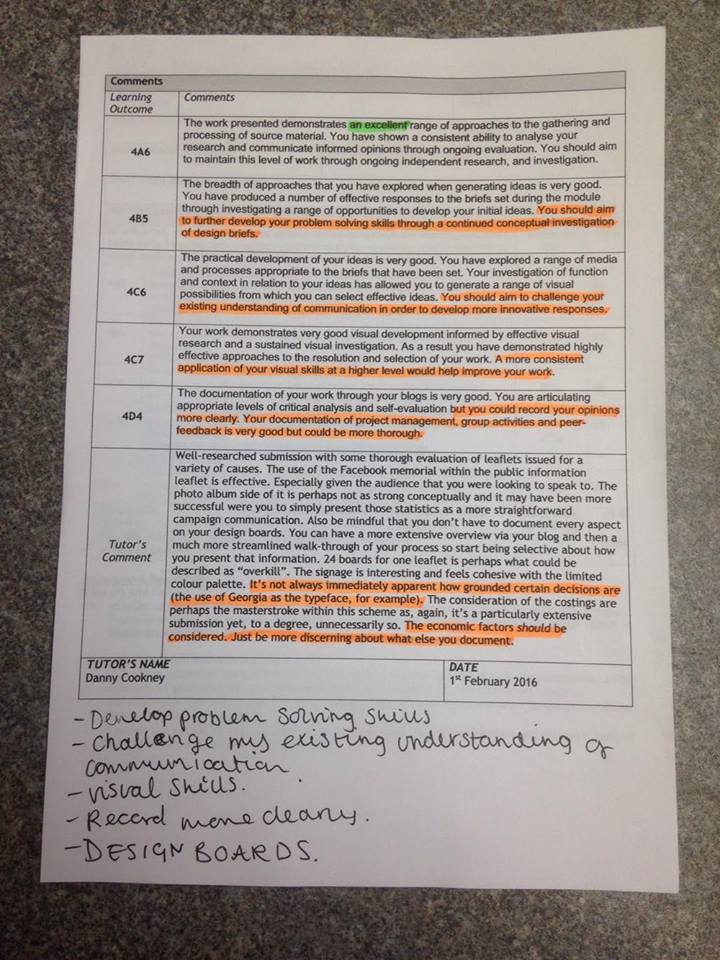 Comments
Learning
Outcome
Comments
4A6
The work presented demonstrates an excellent range of approaches to the gathering and
processing of source material. You have shown a consistent ability to analyse your
research and communicate informed opinions through ongoing evaluation. You should aim
to maintain this level of work through ongoing independent research, and investigation.
4B5
The breadth of approaches that you have explored when generating ideas is very good.
You have produced a number of effective responses to the briefs set during the module
through investigating a range of opportunities to develop your initial ideas. You should aim
to further develop your problem solving skills through a continued conceptual investigation
of design briefs.
4C6
The practical development of your ideas is very good. You have explored a range of media
and processes appropriate to the briefs that have been set. Your investigation of function
and context in relation to your ideas has allowed you to generate a range of visual
possibilities from which you can select effective ideas. You should aim to challenge your
existing understanding of communication in order to develop more innovative responses.
4C7
Your work demonstrates very good visual development informed by effective visual
research and a sustained visual investigation. As a result you have demonstrated highly
effective approaches to the resolution and selection of your work. A more consistent
application of your visual skills at a higher level would help improve your work.
4D4
The documentation of your work through your blogs is very good. You are articulating
appropriate levels of critical analysis and self-evaluation but you could record your opinions
more clearly. Your documentation of project management, group activities and peer-
feedback is very good but could be more thorough.
Tutor's
Comment
Well-researched submission with some thorough evaluation of leaflets issued for a
variety of causes. The use of the Facebook memorial within the public information
leaflet is effective. Especially given the audience that you were looking to speak to. The
photo album side of it is perhaps not as strong conceptually and it may have been more
successful were you to simply present those statistics as a more straightforward
campaign communication. Also be mindful that you don't have to document every aspect
on your design boards. You can have a more extensive overview via your blog and then a
much more streamlined walk-through of your process so start being selective about how
you present that information. 24 boards for one leaflet is perhaps what could be
described as "overkill". The signage is interesting and feels cohesive with the limited
colour palette. It's not always immediately apparent how grounded certain decisions are
(the use of Georgia as the typeface, for example). The consideration of the costings are
perhaps the masterstroke within this scheme as, again, it's a particularly extensive
submission yet, to a degree, unnecessarily so. The economic factors should be
considered. Just be more discerning about what else you document.
TUTOR'S NAME
Danny Cookney
DATE
1st February 2016
- Develop problem solving skills
- Challenge my existing understanding of
communication
- visual skills.
- Record more clearly.
- DESIGN BOARDS.